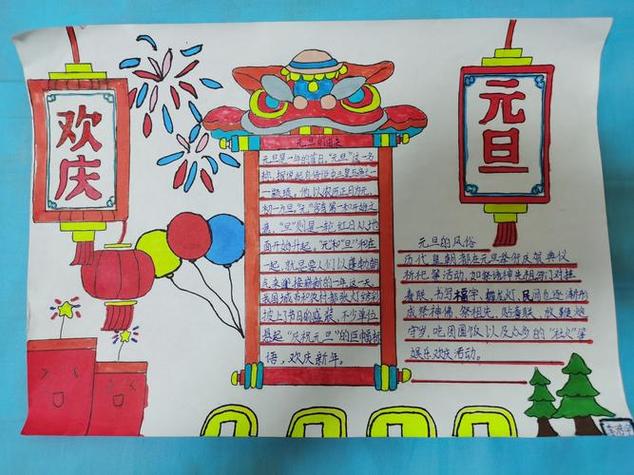 欢庆
元旦
元旦的由来
元旦是一年的首日,"元旦"这一名
称,据说起自传说中三皇五帝之
一颛顼。他以农历正月为元,
初一为旦。"元"有第一和开始之
意,"旦"则是一轮红日从地
面开始升起,"元"和"旦"和在
一起,就是要人们以蓬勃朝
气来迎接崭新的一年这一天
我国城市和农村都张灯结彩
披上了节日的盛装,不少单位
悬起"庆祝元旦"的巨幅标
语,欢庆新年。
元旦的风俗
历代皇朝都在元旦举行庆贺典仪
祈祀等活动,如祭诸神先祖,写门对挂
春联,书写福字、舞龙灯,民间也逐渐形
成祭神佛、祭祖先、贴春联、放鞭炮
守岁、吃团圆饭以及众多的"社火"等
娱乐欢庆活动。